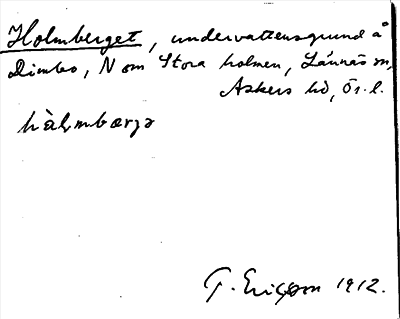 Holmberget, undervattensgrund å
Dimbo, N om Stora holmen, Lännäs sn,
Askers hd, Ör. l.
hòlmbærjə
G. Ericson 1912.